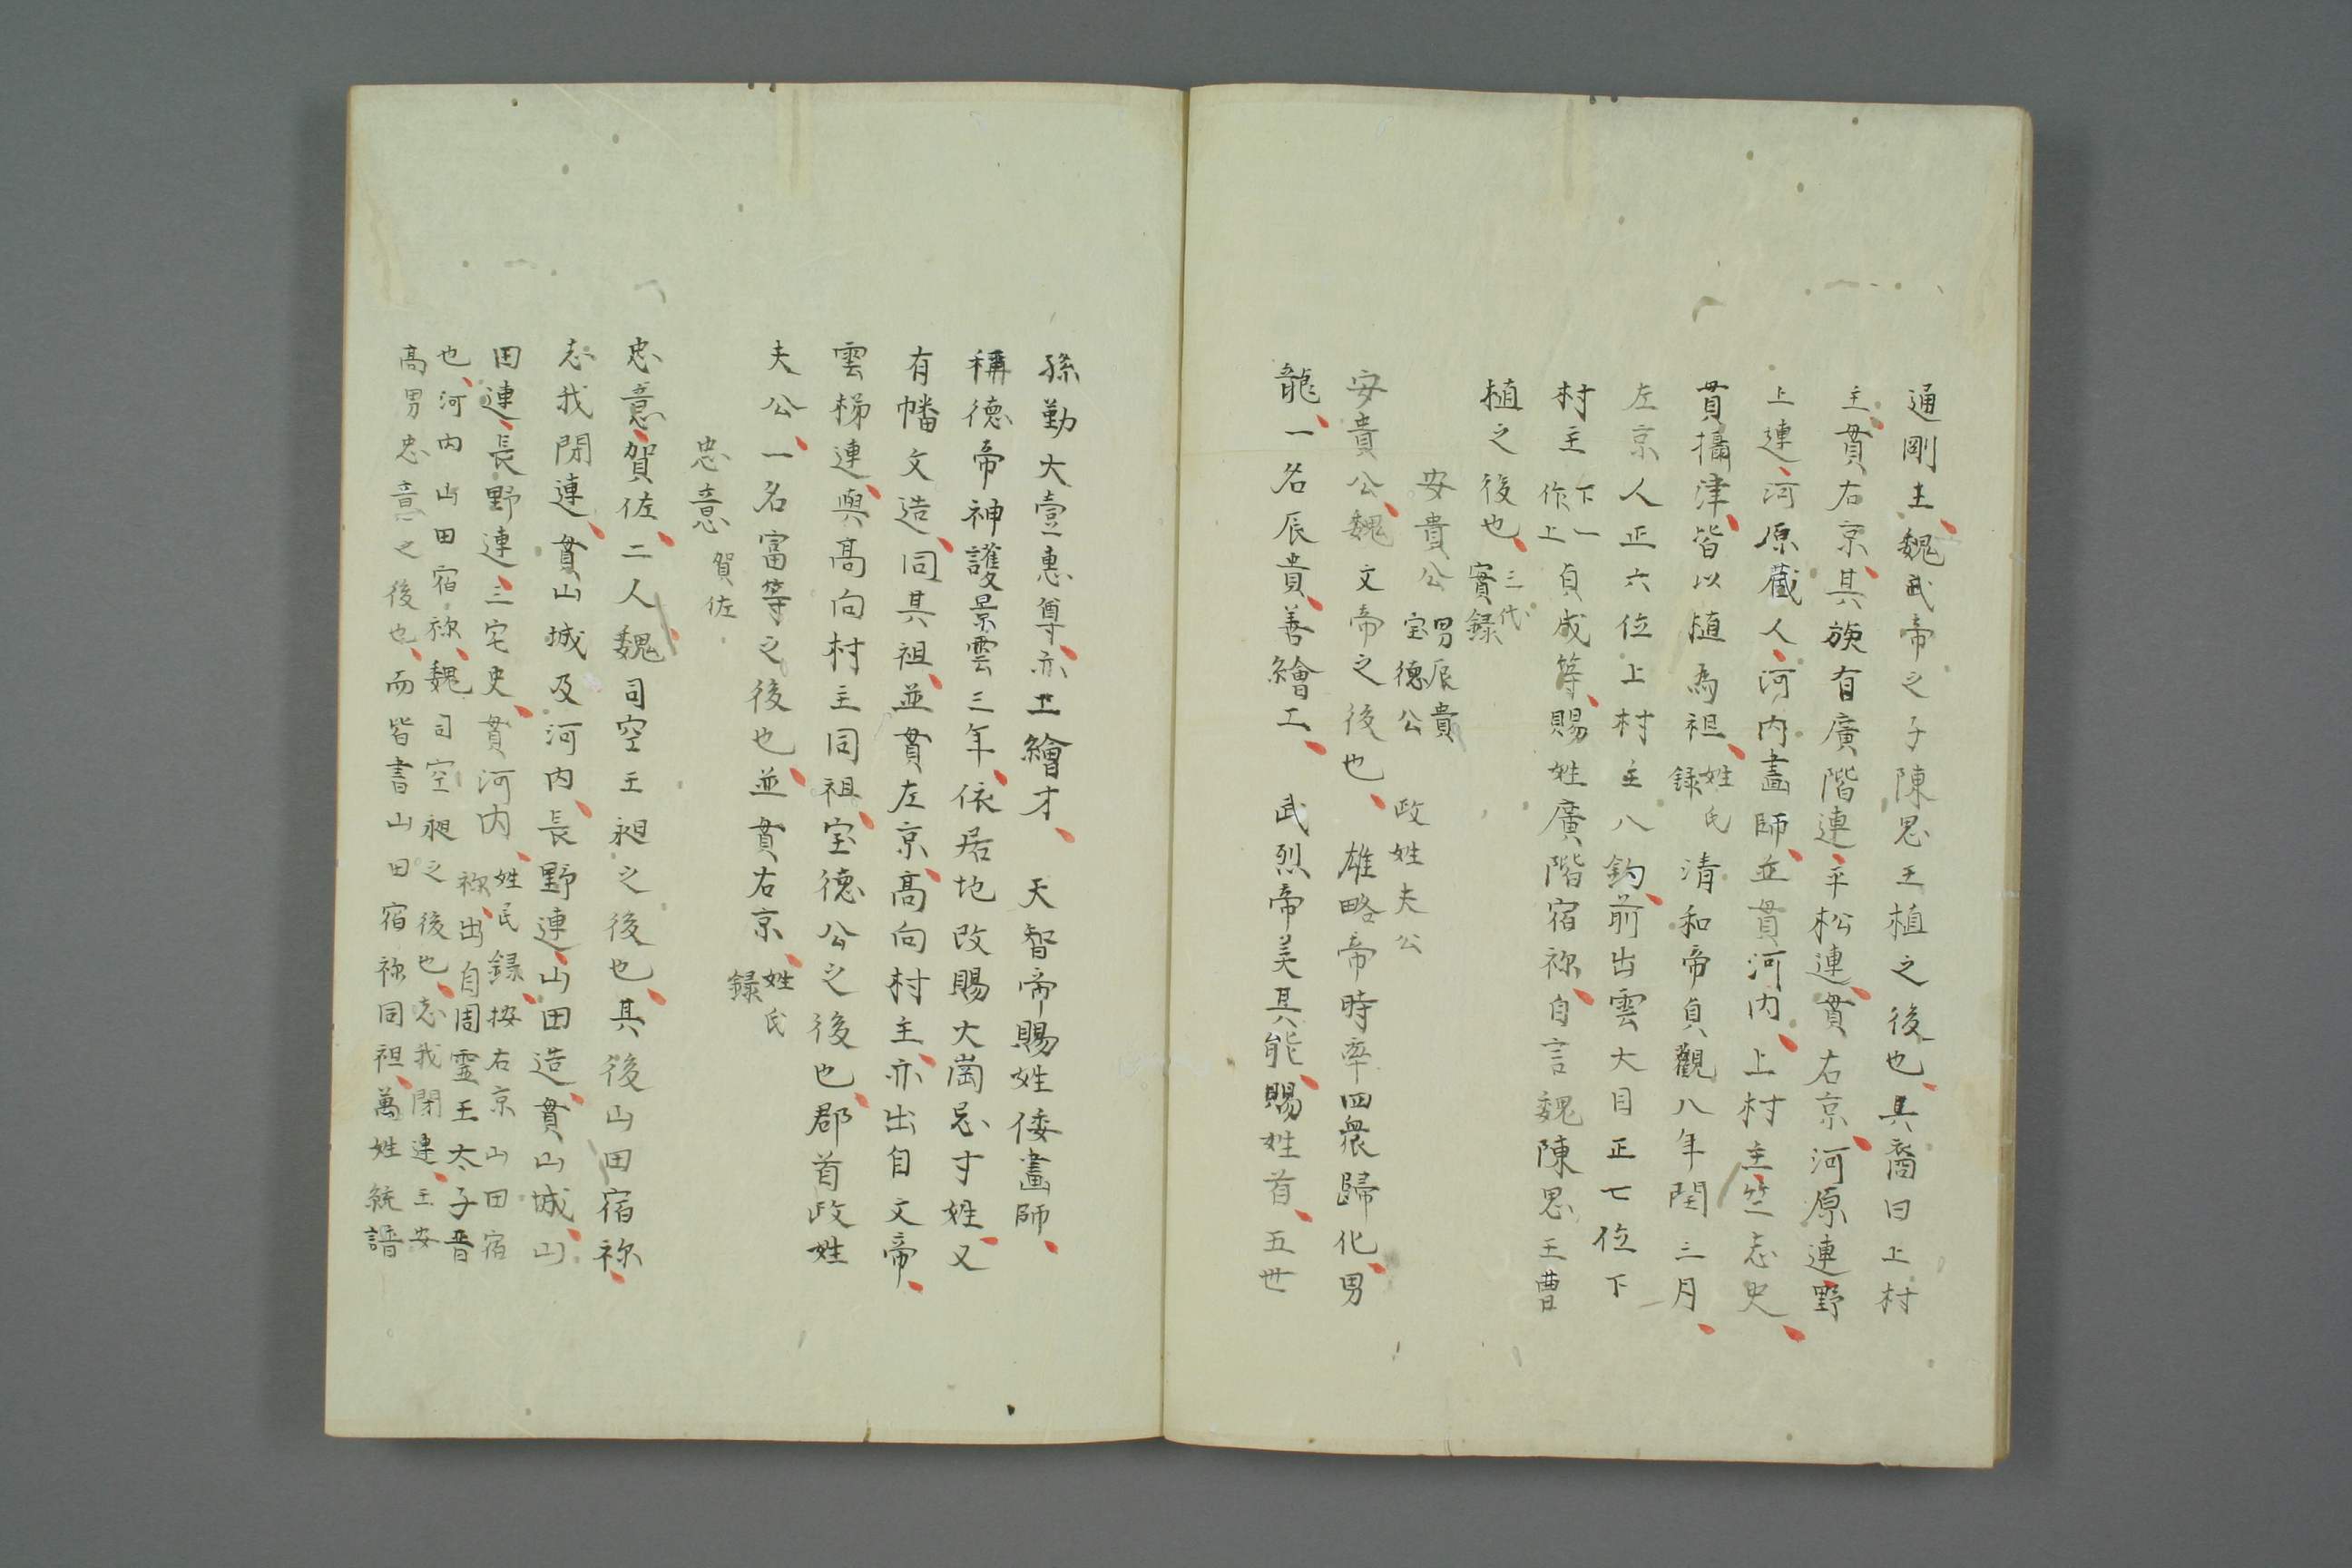 通剛主、魏武帝之子陳思王植之後也、其裔曰上村
主、貫右京、其族有廣階連、平松連、貫右京、河原連、野
上連、河原藏人、河内畵師、並貫河内、上村主、竺志史、
貫攝津、皆以植為祖、姓氏録 清和帝貞觀八年閏三月、
左京人正六位上村主八釣、前出雲大目正七位下
村主 下一作上 貞成等、賜姓廣階宿祢、自言魏陳思王曹
植之後也、三代實録
安貴公 男辰貴 宝德公 政姓夫公
安貴公、魏文帝之後也、雄略帝時率四衆歸化、男
龍、一名辰貴、善繪工、武烈帝美其能、賜姓首、五世
孫勤大壹惠尊、亦工繪才、天智帝賜姓倭畫師、
稱德帝神護景雲三年、依居地改賜大崗忌寸姓、又
有幡文造、同其祖、並貫左京、高向村主、亦出自文帝、
雲梯連、與高向村主同祖、宝德公之後也、郡首政姓
夫公、一名富等之後也、並貫右京、姓氏録
忠意 賀佐
忠意、賀佐、二人、魏司空王昶之後也、其後山田宿祢、
志我閉連、貫山城及河内、長野連、山田造、貫山城、山
田連、長野連、三宅史、貫河内、姓氏録、按右京山田宿
祢、出自周霊王太子晋
也、河内山田宿祢、魏司空昶之後也、志我閉連、王安
高男忠意之後也、而皆書山田宿祢同祖、萬姓統譜